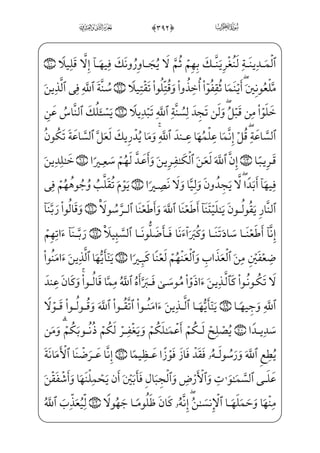 ﴿٣٩٢﴾
ٱلْمَدِينَةِ لَنُغْرِيَنَّكَ بِهِمْ ثُمَّ لَا يُجَاوِرُونَكَ فِيهَآ إِلَّا قَلِيلًا ﴿٦٠﴾
مَّلْعُونِينَ ۖ أَيْنَمَا ثُقِفُوٓا۟ أُخِذُوا۟ وَقُتِّلُوا۟ تَقْتِيلًا ﴿٦١﴾ سُنَّةَ ٱللَّهِ فِى ٱلَّذِينَ
خَلَوْا۟ مِن قَبْلُ ۖ وَلَن تَجِدَ لِسُنَّةِ ٱللَّهِ تَبْدِيلًا ﴿٦٢﴾ يَسْـَٔلُكَ ٱلنَّاسُ عَنِ
ٱلسَّاعَةِ ۖ قُلْ إِنَّمَا عِلْمُهَا عِندَ ٱللَّهِ ۚ وَمَا يُدْرِيكَ لَعَلَّ ٱلسَّاعَةَ تَكُونُ
قَرِيبًا ﴿٦٣﴾ إِنَّ ٱللَّهَ لَعَنَ ٱلْكَٰفِرِينَ وَأَعَدَّ لَهُمْ سَعِيرًا ﴿٦٤﴾ خَٰلِدِينَ
فِيهَآ أَبَدًا ۖ لَّا يَجِدُونَ وَلِيًّا وَلَا نَصِيرًا ﴿٦٥﴾ يَوْمَ تُقَلَّبُ وُجُوهُهُمْ فِى
ٱلنَّارِ يَقُولُونَ يَٰلَيْتَنَآ أَطَعْنَا ٱللَّهَ وَأَطَعْنَا ٱلرَّسُولَا۠ ﴿٦٦﴾ وَقَالُوا۟ رَبَّنَآ
إِنَّآ أَطَعْنَا سَادَتَنَا وَكُبَرَآءَنَا فَأَضَلُّونَا ٱلسَّبِيلَا۠ ﴿٦٧﴾ رَبَّنَآ ءَاتِهِمْ
ضِعْفَيْنِ مِنَ ٱلْعَذَابِ وَٱلْعَنْهُمْ لَعْنًا كَبِيرًا ﴿٦٨﴾ يَٰٓأَيُّهَا ٱلَّذِينَ ءَامَنُوا۟
لَا تَكُونُوا۟ كَٱلَّذِينَ ءَاذَوْا۟ مُوسَىٰ فَبَرَّأَهُ ٱللَّهُ مِمَّا قَالُوا۟ ۚ وَكَانَ عِندَ
ٱللَّهِ وَجِيهًا ﴿٦٩﴾ يَٰٓأَيُّهَا ٱلَّذِينَ ءَامَنُوا۟ ٱتَّقُوا۟ ٱللَّهَ وَقُولُوا۟ قَوْلًا
سَدِيدًا ﴿٧٠﴾ يُصْلِحْ لَكُمْ أَعْمَٰلَكُمْ وَيَغْفِرْ لَكُمْ ذُنُوبَكُمْ ۗ وَمَن
يُطِعِ ٱللَّهَ وَرَسُولَهُۥ فَقَدْ فَازَ فَوْزًا عَظِيمًا ﴿٧١﴾ إِنَّا عَرَضْنَا ٱلْأَمَانَةَ
عَلَى ٱلسَّمَٰوَٰتِ وَٱلْأَرْضِ وَٱلْجِبَالِ فَأَبَيْنَ أَن يَحْمِلْنَهَا وَأَشْفَقْنَ
مِنْهَا وَحَمَلَهَا ٱلْإِنسَٰنُ ۖ إِنَّهُۥ كَانَ ظَلُومًا جَهُولًا ﴿٧٢﴾ لِّيُعَذِّبَ ٱللَّهُ